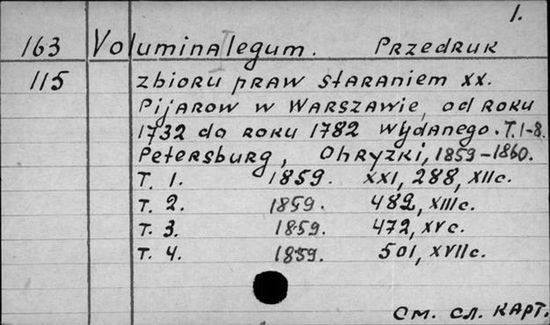 1.
163 Volumina legum. Przedruk
115 zbioru praw staraniem XX.
Pijarow w Warszawie, od roku
1732 do roku 1782 wydanego. T. 1-8.
Petersburg, Ohryzki, 1859-1860.
T. 1. 1859. XXI, 288, XIIс.
T. 2. 1859. 482, XIIIс.
T. 3. 1859. 472, XVс.
T. 4. 1859. 501, XVIIс.
См. сл. карт.